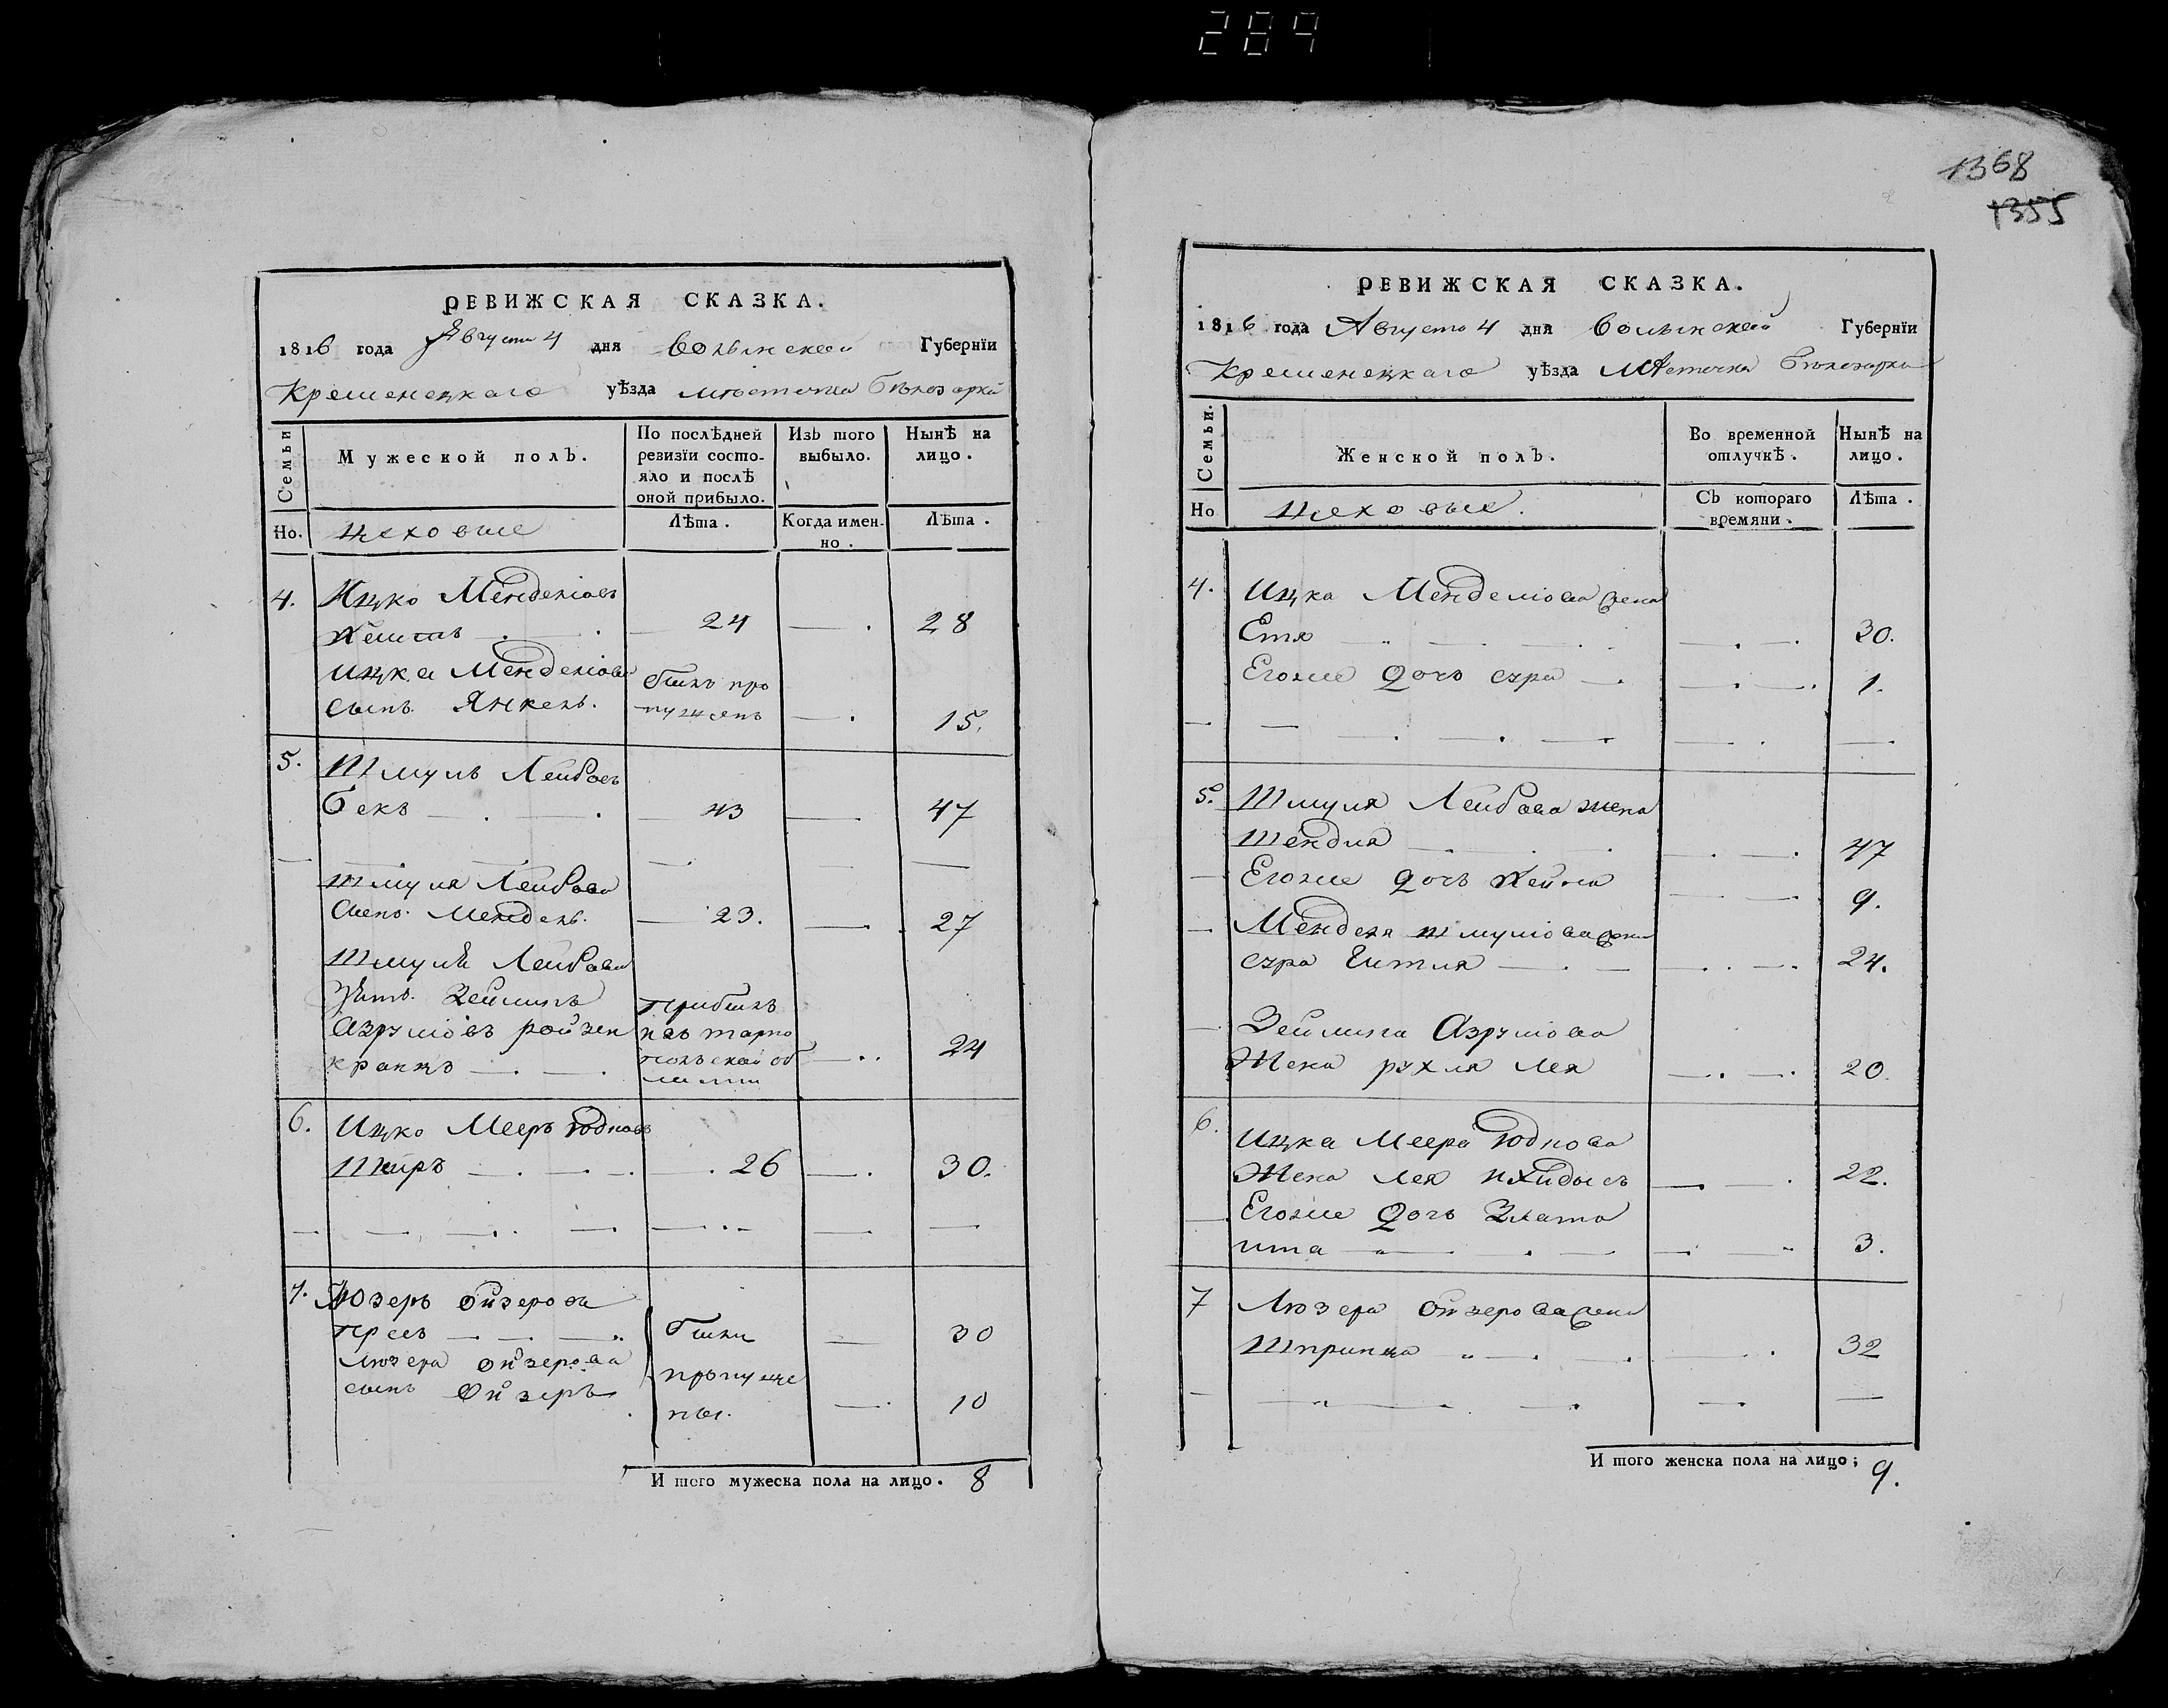 289
1368
1355
РЕВИЖСКАЯ СКАЗКА.
1816 года Августа 4 дня Волынской Губернїи
Кременецкаго уѣзда мѣстечка Бѣлозорки
Семьи
Мужеской полъ.
По послѣдней ревизїи состо-
яло и послѣ
оной прибыло.
Изъ того выбыло.
Нынѣ на лицо.
Но. цеховые
Лѣта.
Когда имен-
но.
Лѣта.
4. Ицко Менделіовъ
24 — 28
Ицка Менделіова былъ про
сынъ Янкель. пущенъ — 15.
5. Шмуль Лейбовъ
Бекъ — 43 — 47
Шмуля Лейбова
сынъ Мендель. — 23. — 27
Шмуля Лейбова
зять Зейлигъ прибылъ
Азрулiовъ ройзен изъ тарно
кранцъ — польской об — 24
ласти
6. Ицко Мееръ Юдковъ
26 — 30.
7. Лозеръ Ойзерова
Пресъ — были — 30
Люзера Ойзерова пропуще
сынъ Ойзеръ ны. — 10
И того мужеска пола на лицо. 8
РЕВИЖСКАЯ СКАЗКА.
1816 года Августа 4 дня Волынской Губернїи
Кременецкаго уѣзда Мѣстечка Бѣлозорки
Семьи.
Женской полъ.
Во временной отлучкѣ.
Нынѣ на лицо.
Но цеховые.
Съ котораго времяни.
Лѣта.
4. Ицка Менделiова жена
Етя — 30.
Егоже дочь сура — 1.
5. Шмуля Лейбова жена
Шендля — 47
Егоже дочь Хейна — 9.
Менделя Шмулiова жена
сура Гитля — 24.
Зейлига Азрулiова
Жена рухля лея — 20.
6. Ицка Меера Юдкова
Жена лея — 22.
Егоже дочь Злата
ита — 3.
7 Люзера Ойзерова жена
Шпринца — 32
И того женска пола на лицо; 9.